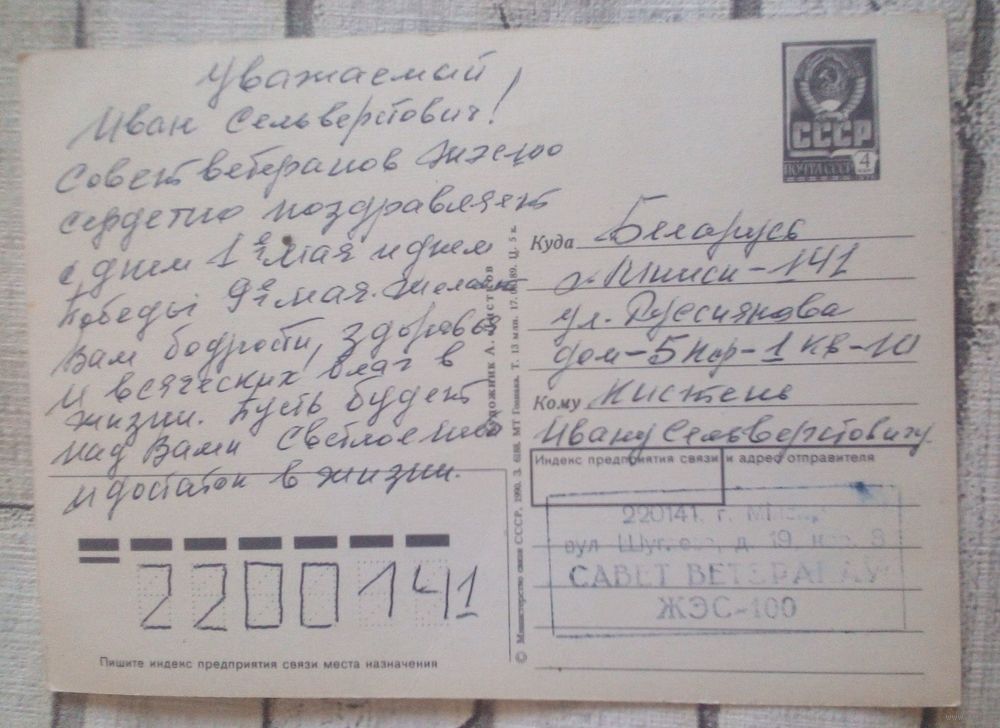 Уважаемый
Иван Сельверстович!
Совет ветеранов жэс-100
сердечно поздравляет
с днем 1 мая и днем
Победы 9 мая. Желает
Вам бодрости, здоровья
и всяческих благ в
жизни. Пусть будет
над Вами Светлое
и достаток в жизни.
220014 1
Пишите индекс предприятия связи места назначения
© Министерство связи СССР, 1990. З. МТ Гознака. Т. 13 млн. 17. Ц. 5 к.
СССР
ПОЧТА СССР
4
Куда Беларусь
г. Минск-141
ул. Руссиянова
дом-5 кор-1 кв-10
Кому Кистень
Ивану Сельверстовичу
Индекс предприятия связи и адрес отправителя
220141. г.
вул д. 19
САВЕТ ВЕТЭРАНАЎ
ЖЭС-100